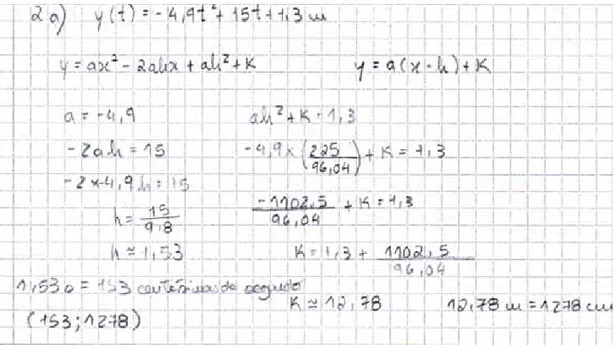 2a) y(t) = -4,9t² + 15t + 1,3 m
y = ax² - 2ahx + ah² + K y = a(x - h) + K
a = -4,9 ah² + K = 1,3
-2ah = 15 -4,9 × (225/96,04) + K = 1,3
-2×-4,9h = 15 -1102,5/96,04 + K = 1,3
h = 15/9,8
h ≈ 1,53 K = 1,3 + 1102,5/96,04
1,53 s = 153 centésimas de segundo
K ≈ 12,78 12,78 m = 1278 cm
(153; 1278)